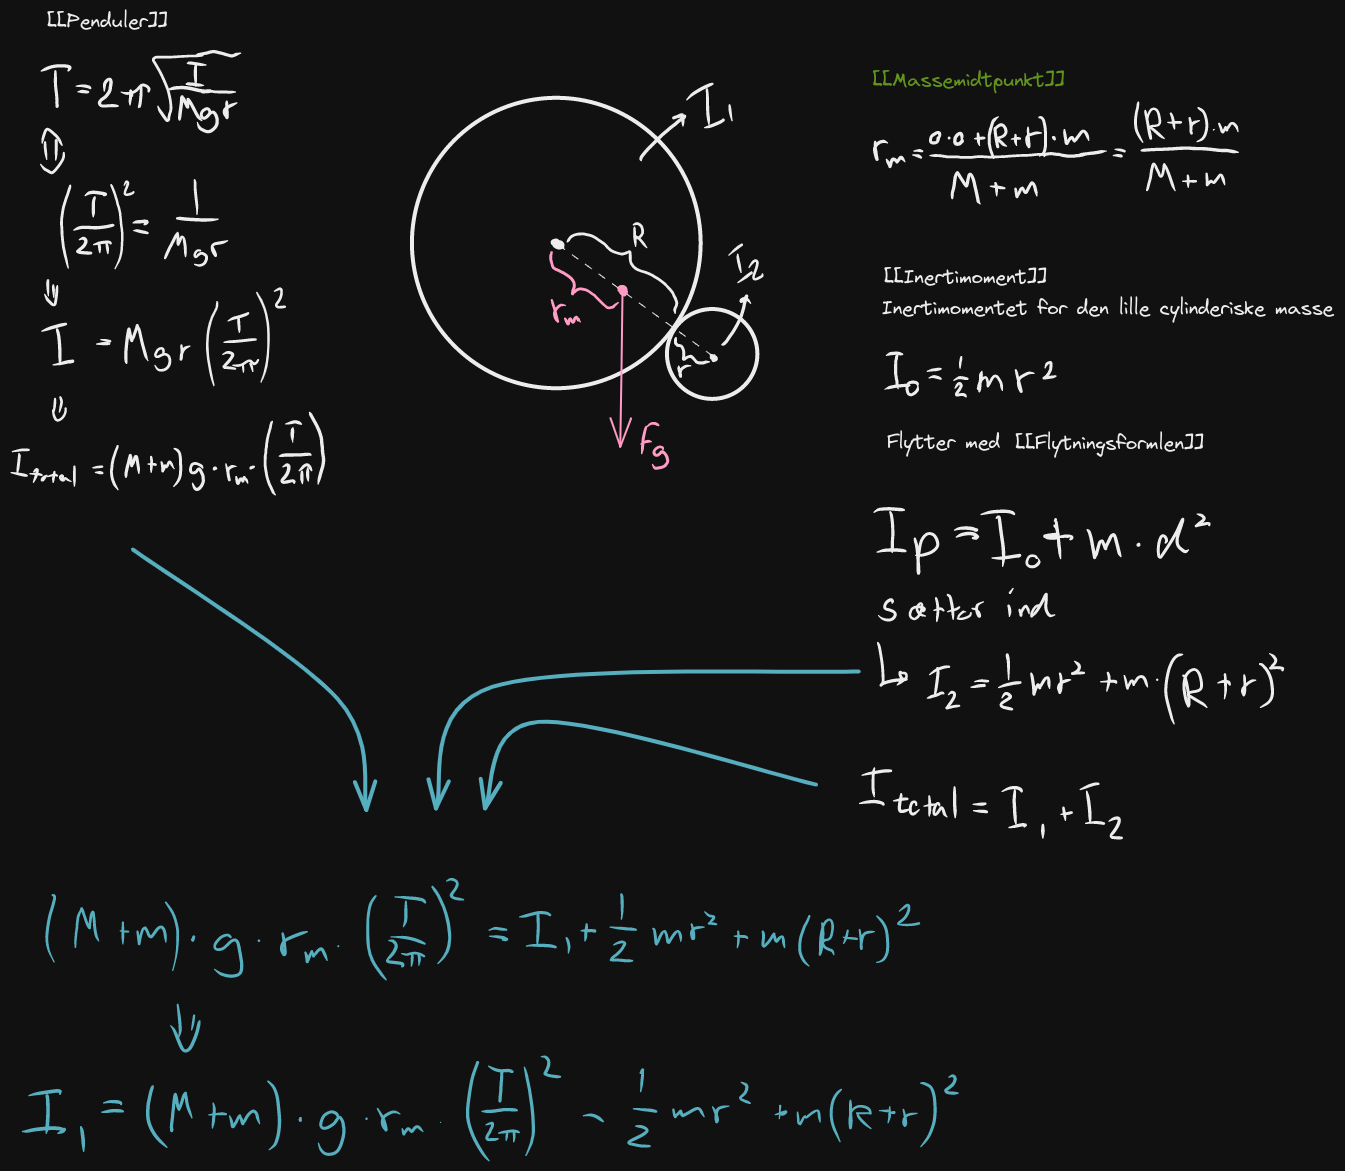 [[Penduler]]
T = 2π√(I/Mgr)
⇕
(T/2π)² = 1/Mgr
⇓
I = Mgr (T/2π)²
⇓
I_total = (M+m) g · r_m · (T/2π)
I₁
R
I₂
r_m
r
F_g
[[Massemidtpunkt]]
r_m = (0·0 + (R+r)·m)/(M+m) = ((R+r)·m)/(M+m)
[[Inertimoment]]
Inertimomentet for den lille cylinderiske masse
I₀ = ½ m r²
Flytter med [[Flytningsformlen]]
I_p = I₀ + m · d²
sætter ind
↳ I₂ = ½ mr² + m · (R+r)²
I_total = I₁ + I₂
(M+m) · g · r_m · (T/2π)² = I₁ + ½ mr² + m(R+r)²
⇓
I₁ = (M+m) · g · r_m · (T/2π)² - ½ mr² + m(R+r)²